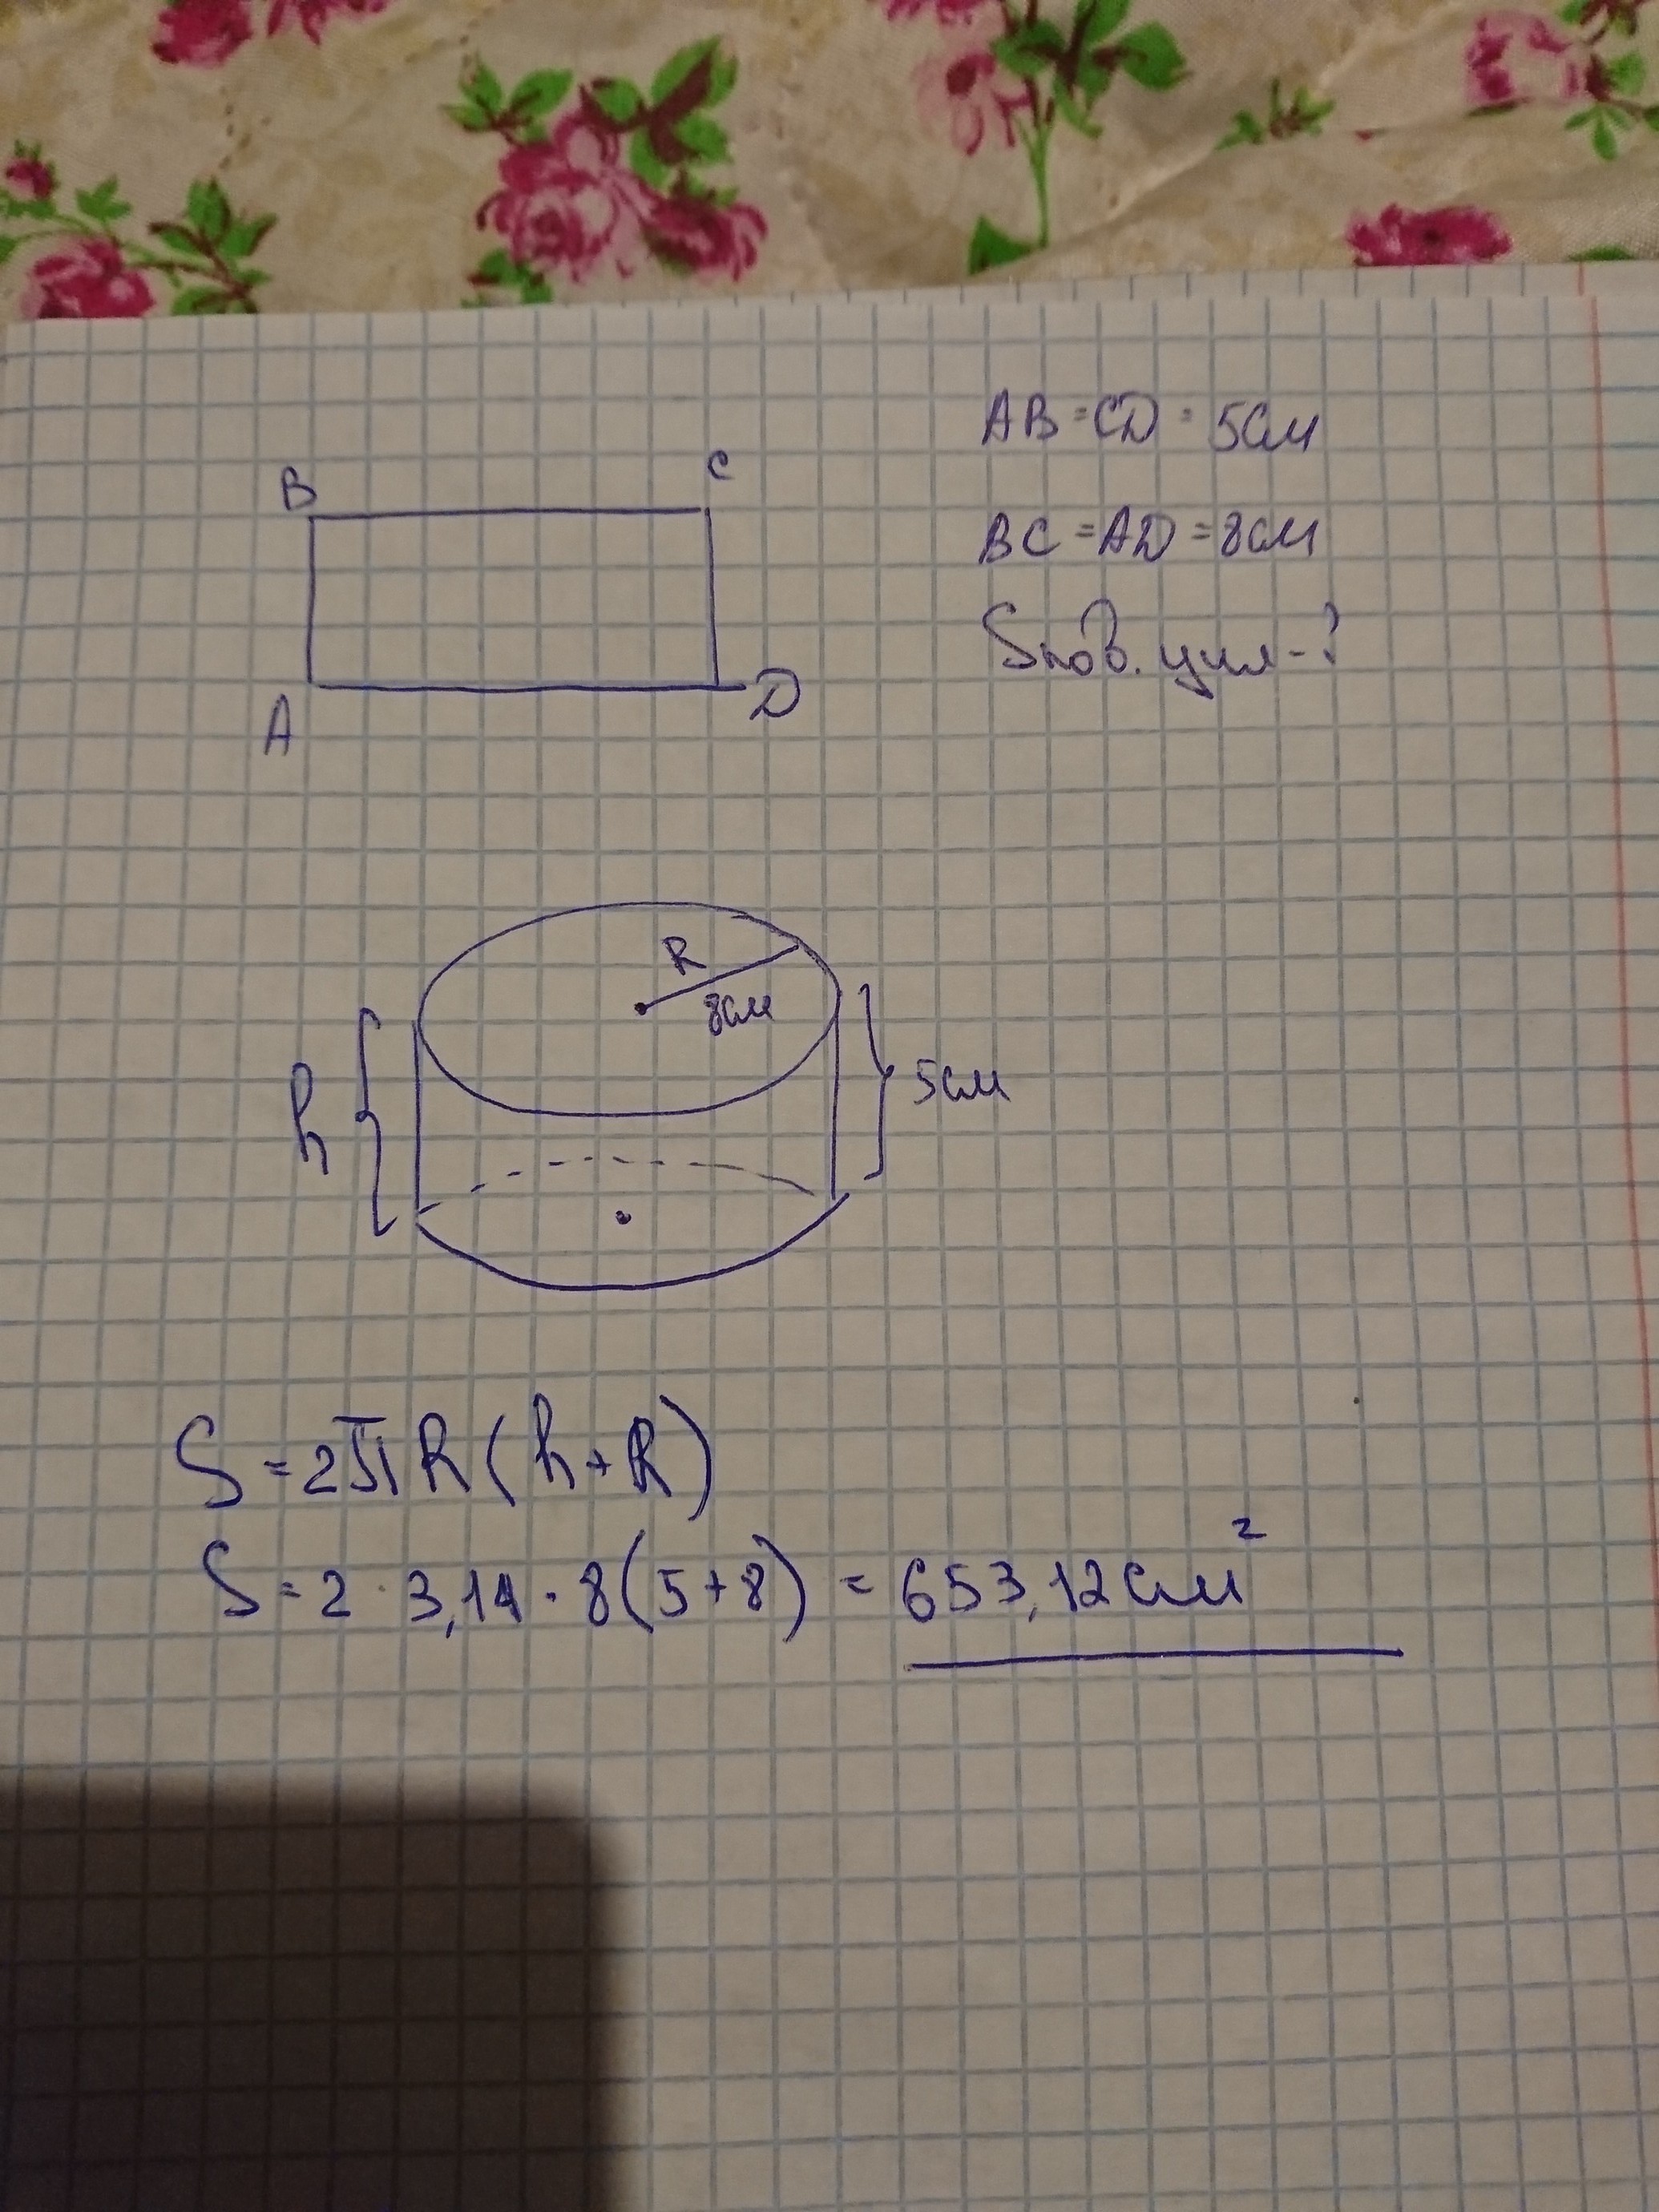 AB = CD = 5см
BC = AD = 8см
Sпов. цил - ?
B
C
A
D
R
8см
h
5см
S = 2πR(h+R)
S = 2 · 3,14 · 8(5+8) = 653,12 см²